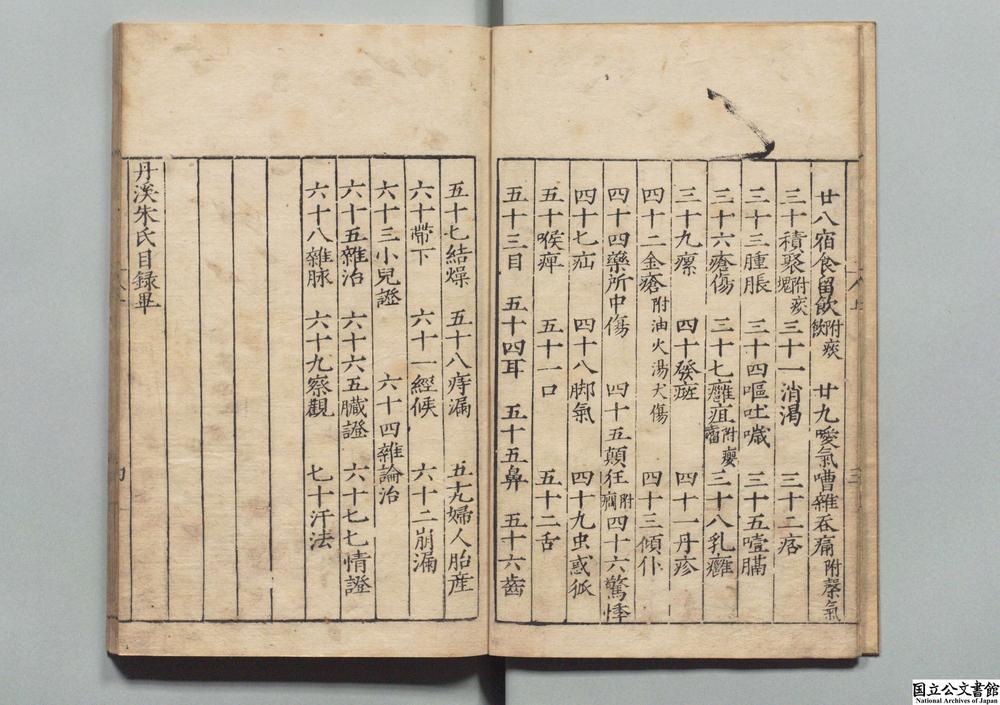 廿八宿食留飲附痰飲 廿九噯氣嘈雜吞痛附氣
三十積聚附痰塊 三十一消渴 三十二痞
三十三腫脹 三十四嘔吐噦 三十五噎膈
三十六瘡傷 三十七癰疽附癭瘤 三十八乳癰
三十九瘰 四十發斑 四十一丹疹
四十二金瘡附油火湯犬傷 四十三傾仆
四十四藥所中傷 四十五顛狂附癇 四十六驚悸
四十七疝 四十八脚氣 四十九虫惑狐
五十喉痺 五十一口 五十二舌
五十三目 五十四耳 五十五鼻 五十六齒
五十七結燥 五十八痔漏 五十九婦人胎産
六十帶下 六十一經候 六十二崩漏
六十三小兒證 六十四雜論治
六十五雜治 六十六五臓證 六十七七情證
六十八雜脉 六十九察觀 七十汗法
丹溪朱氏目録畢
国立公文書館
National Archives of Japan